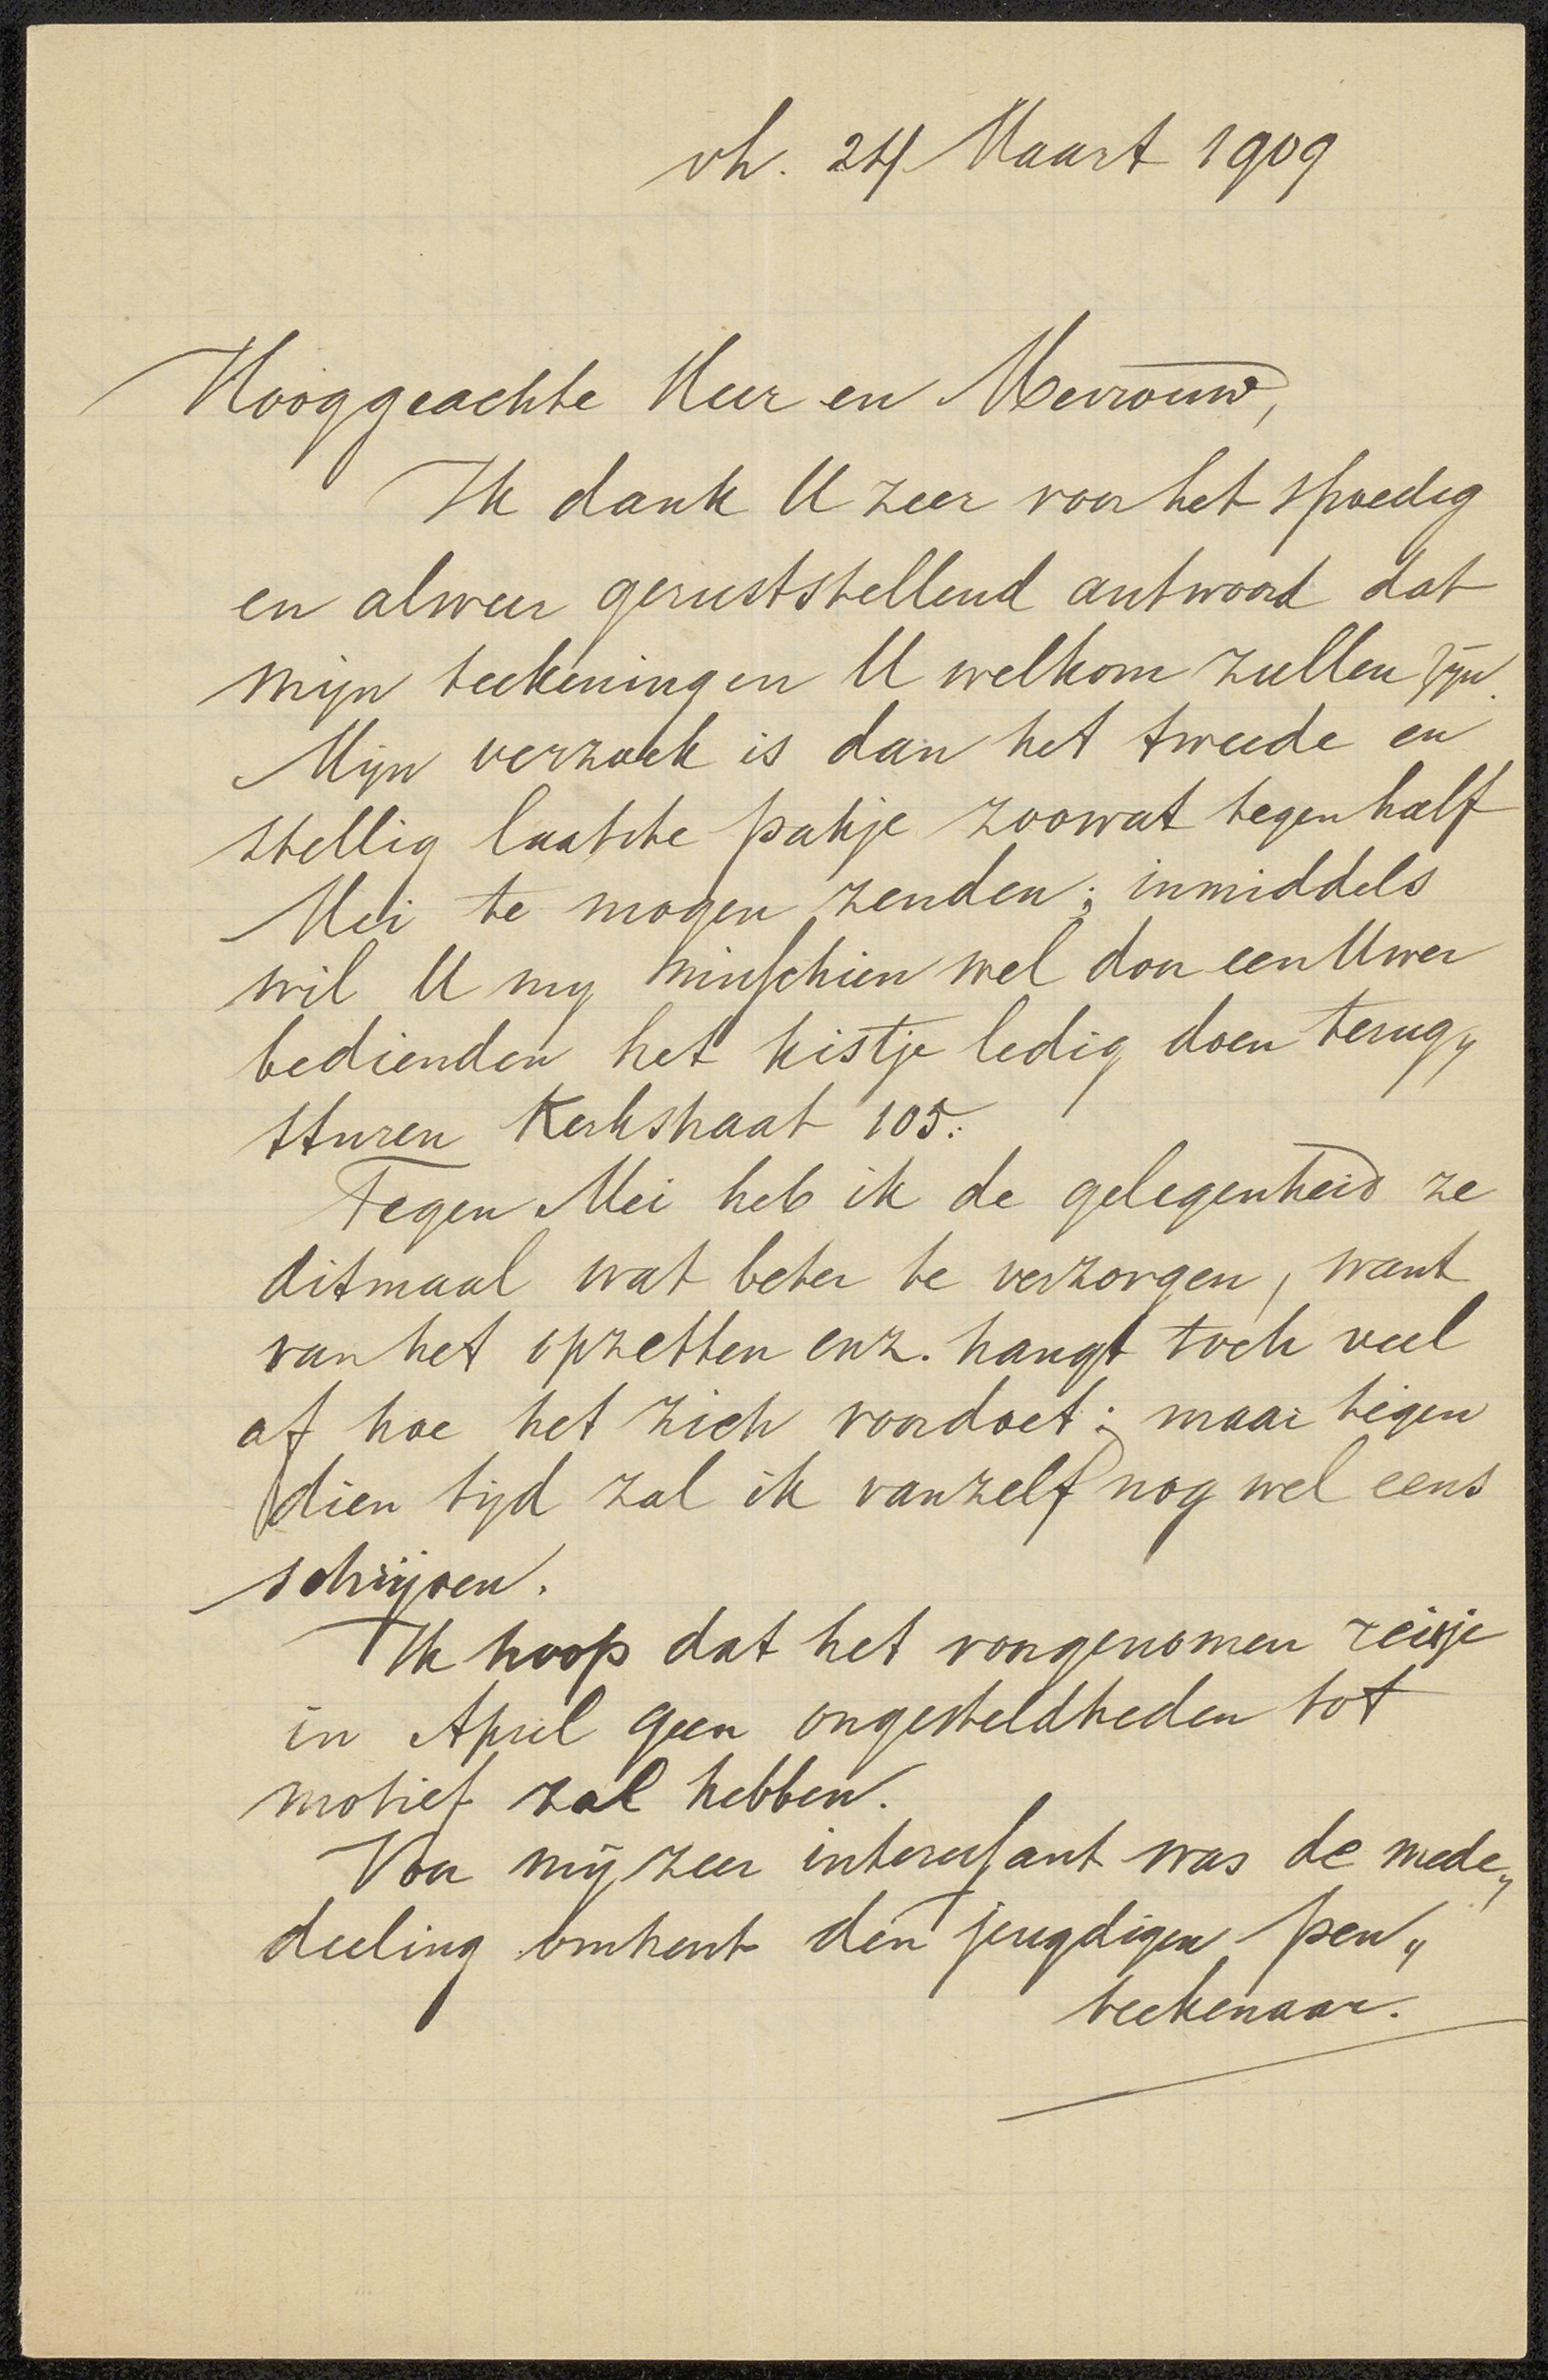 vh. 24 Maart 1909
Hooggeachte Heer en Mevrouw,
Ik dank U zeer voor het spoedig
en alweer geruststellend antwoord dat
mijn teekeningen U welkom zullen zijn.
Mijn verzoek is dan het tweede en
stellig laatste pakje zoowat tegen half
Mei te mogen zenden; inmiddels
wil U my misschien wel door een Uwer
bedienden het kistje ledig doen terug„
sturen Kerkstraat 105.
Tegen Mei heb ik de gelegenheid ze
ditmaal wat beter te verzorgen, want
van het opzetten enz. hangt toch veel
af hoe het zich voordoet; maar tegen
dien tijd zal ik vanzelf nog wel eens
schrijven.
Ik hoop dat het voorgenomen reisje
in April geen ongesteldheden tot
motief zal hebben.
Voor mij zeer interessant was de mede„
deeling omtrent den jeugdigen pen„
teekenaar.